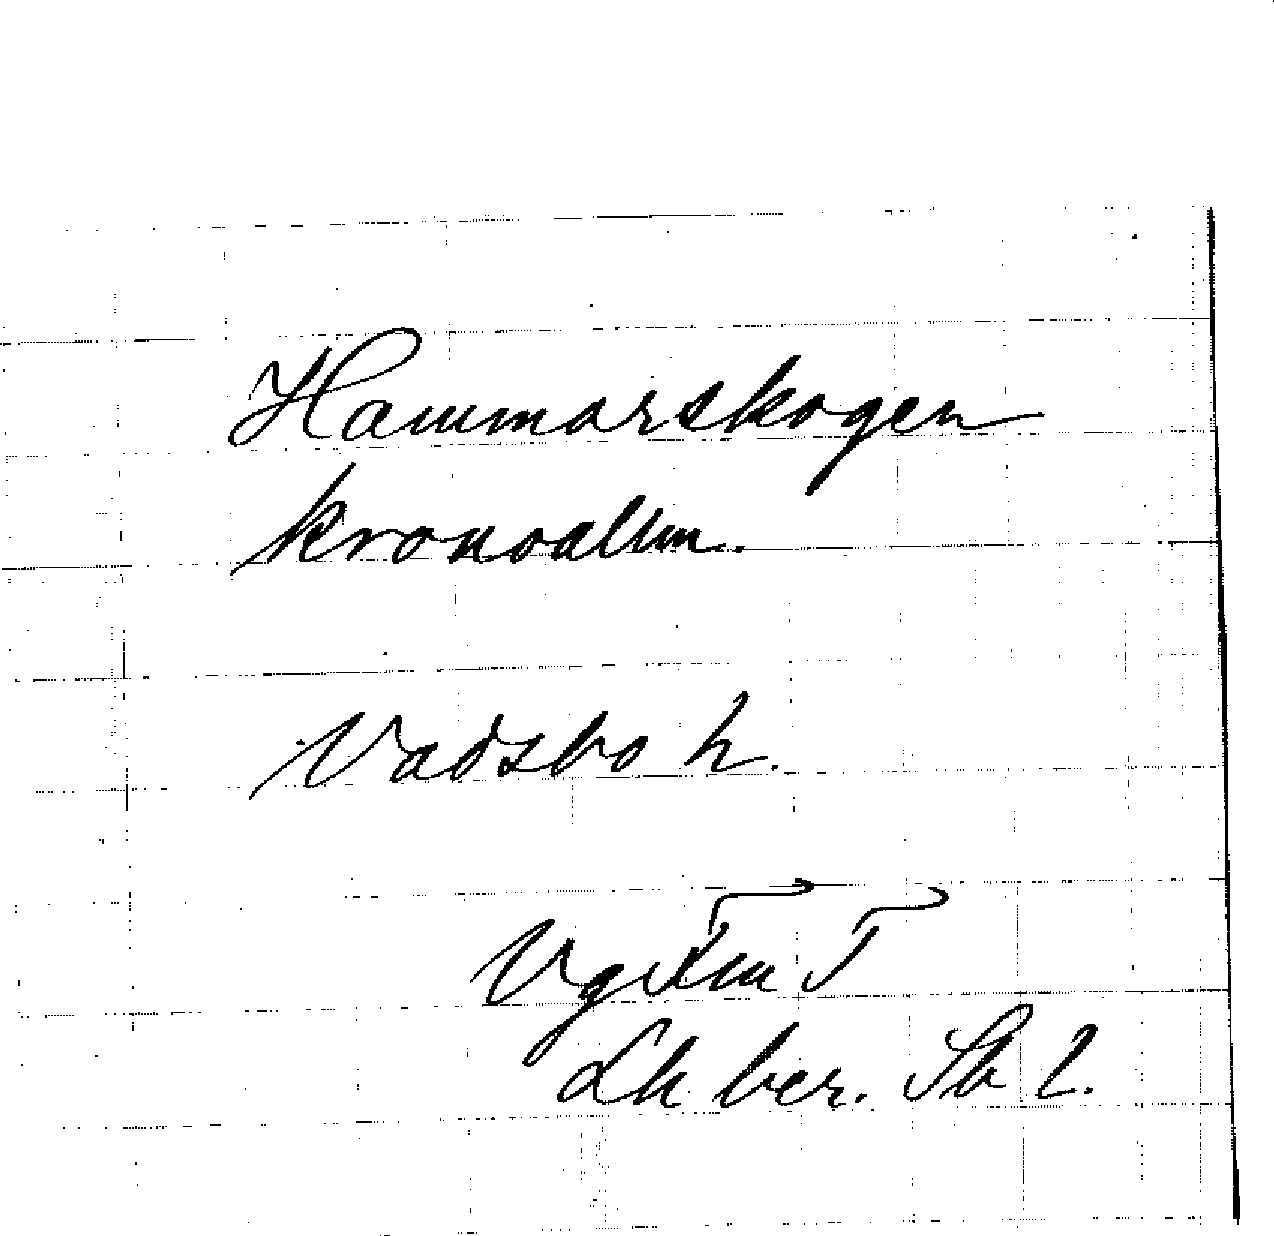 Hammarskogen
kronoallm.
Vadsbo h.
Vg
Lh ber. Sb 2.